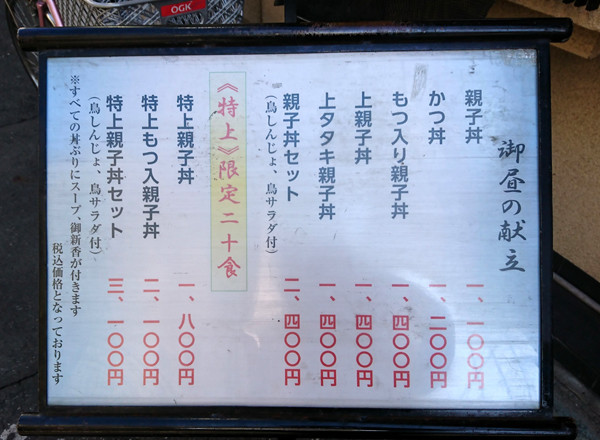 御昼の献立
親子丼 一、一〇〇円
かつ丼 一、二〇〇円
もつ入り親子丼 一、四〇〇円
上親子丼 一、四〇〇円
上タタキ親子丼 一、四〇〇円
親子丼セット 二、四〇〇円
(鳥しんじょ、鳥サラダ付)
《特上》限定二十食
特上親子丼 一、八〇〇円
特上もつ入親子丼 二、一〇〇円
特上親子丼セット 三、一〇〇円
(鳥しんじょ、鳥サラダ付)
※すべての丼ぶりにスープ、御新香が付きます
税込価格となっております
OGK